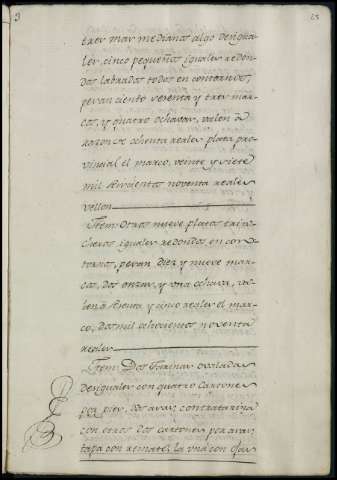 25
tres mas medianas algo desigua-
les, cinco pequeños iguales redon-
dos labrados todos en contornos,
pesan ciento sesenta y tres mar-
cos, y quatro ochavas, valen à
razon de ochenta reales plata pro-
vincial el marco, veinte y siete
mil novena reales
vellon
Item: Otros nueve platos trin-
cheros iguales redondos en con-
tornos, pesan Diez y nueve mar-
cos, dos onzas, y una ochava, va-
len à setenta y cinco reales el mar-
co, dos mil ochocientos noventa
reales
Item: Dos ovaladas
desiguales con quatro Cartones
por pies, dos asas, contratarja
con otros dos cartones por asas,
tapa con remate, la una con